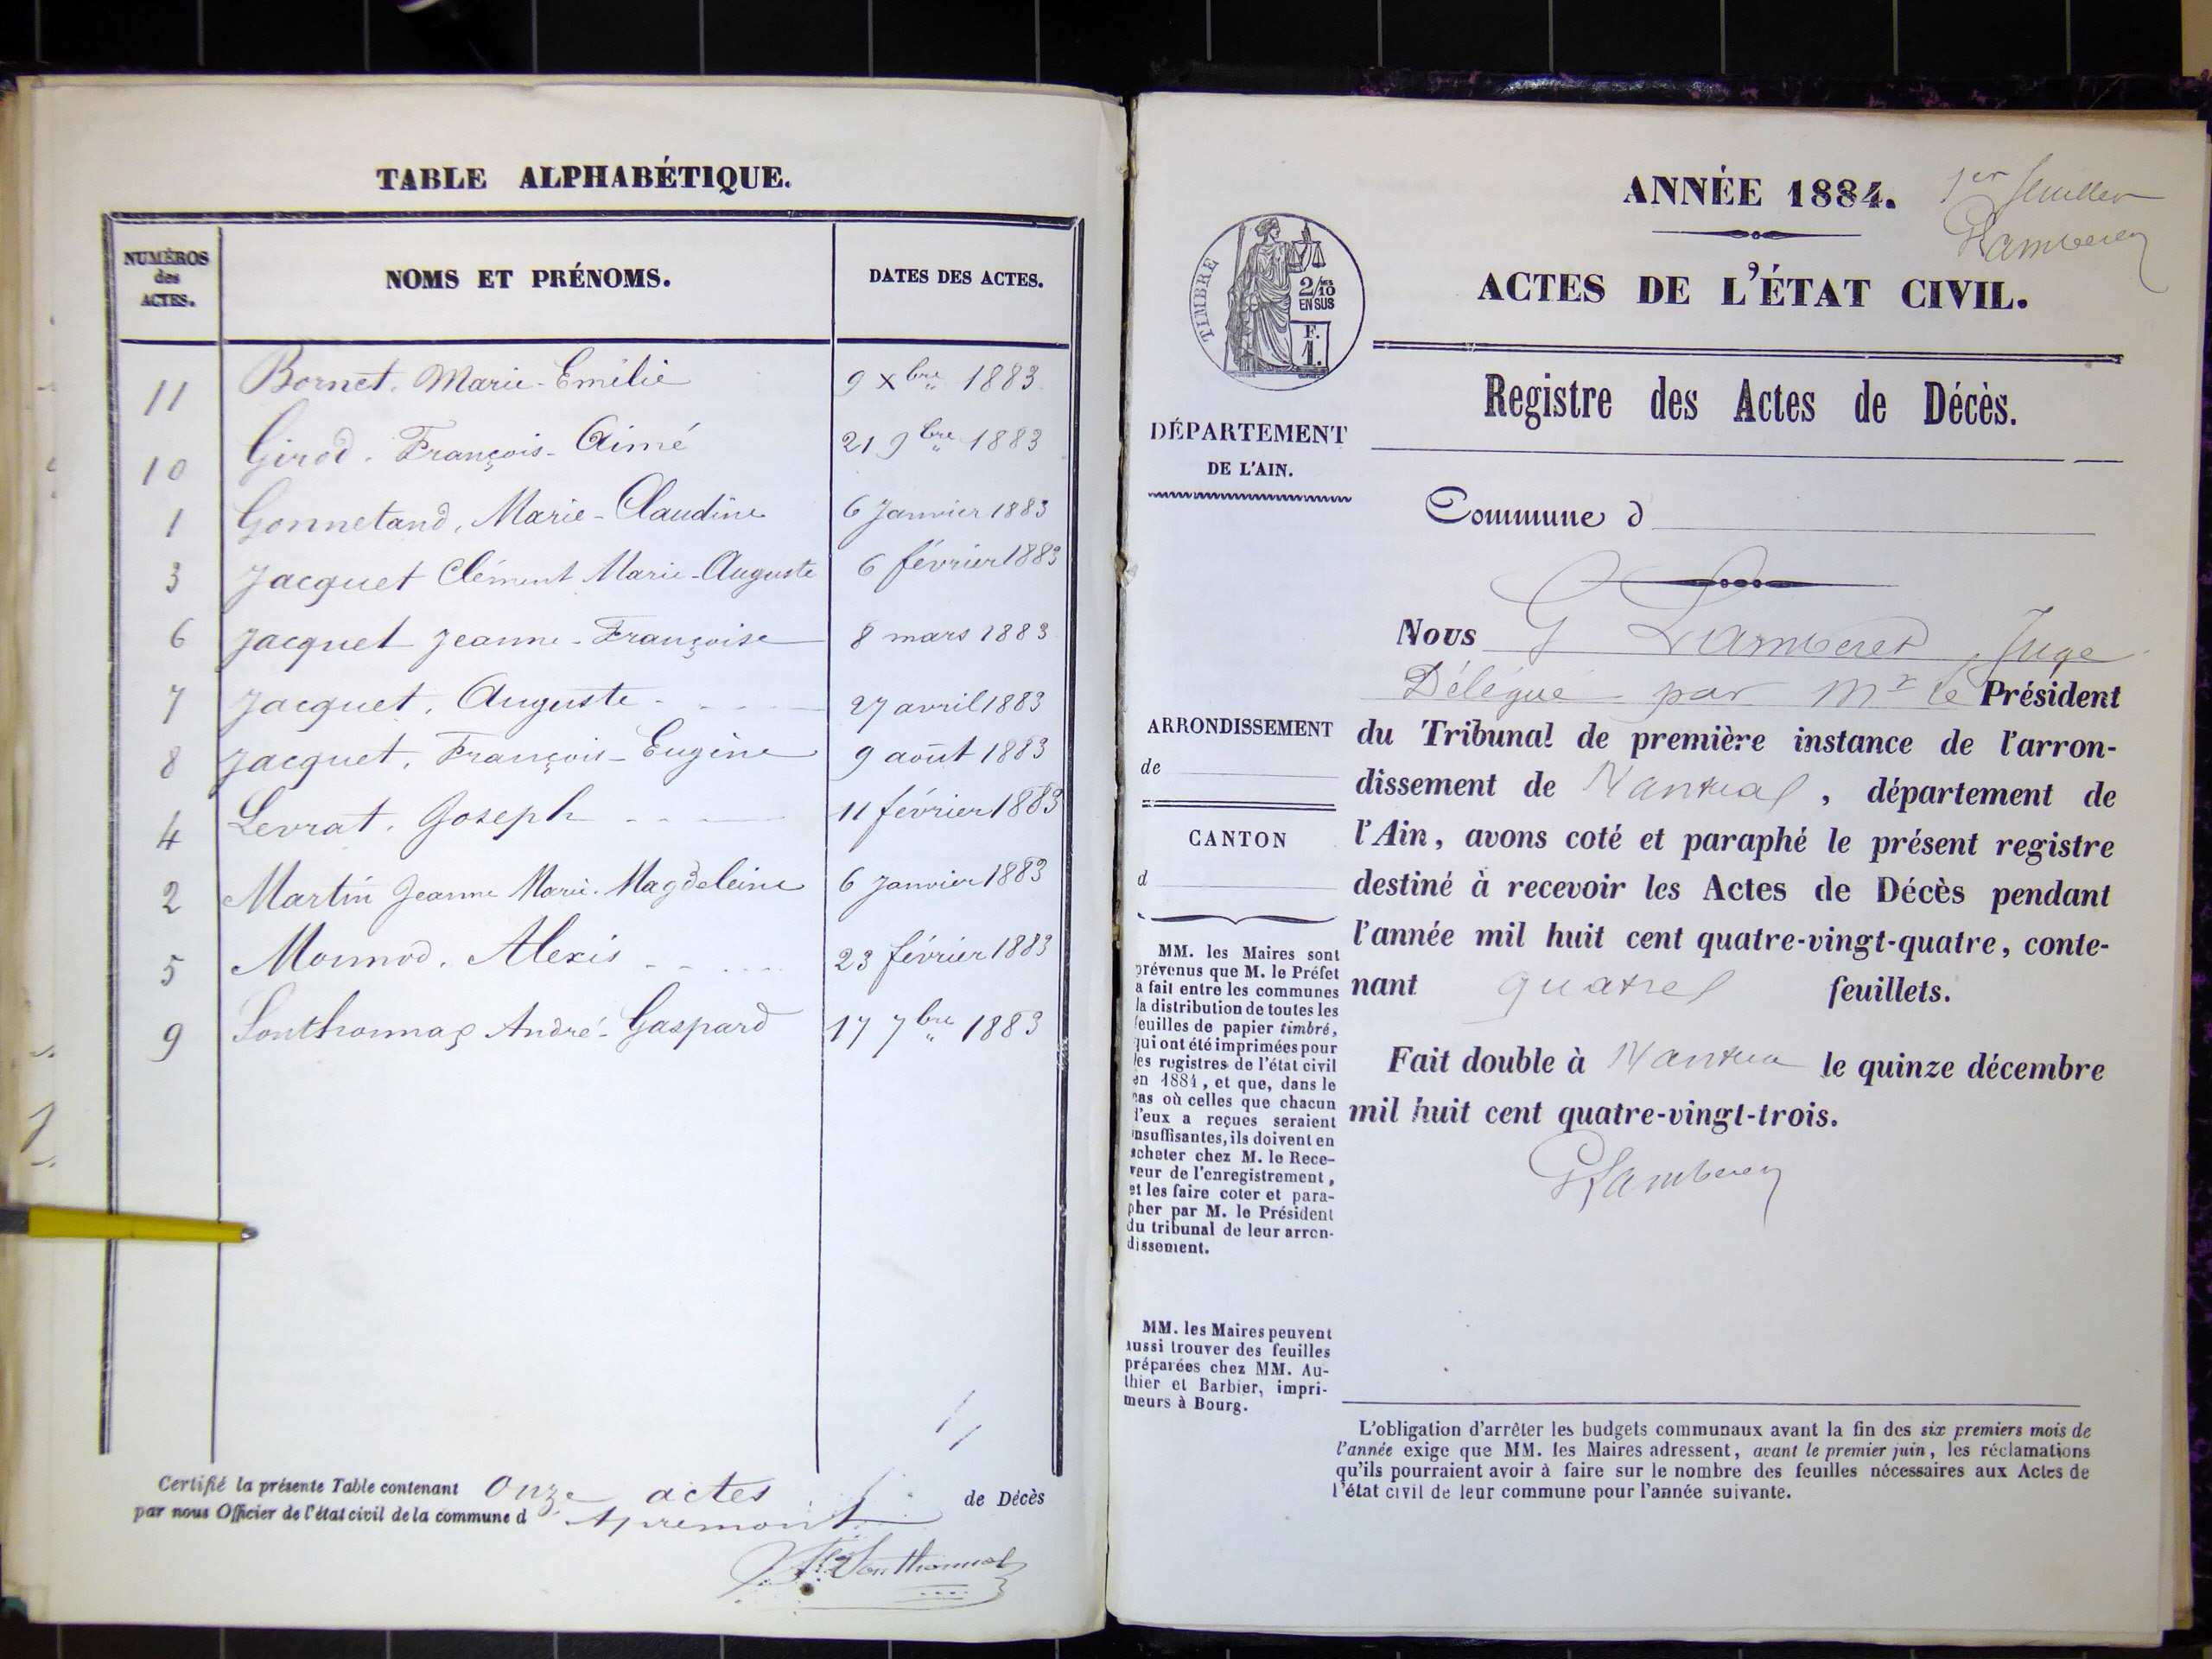 TABLE ALPHABÉTIQUE.
NUMÉROS des ACTES.
NOMS ET PRÉNOMS.
DATES DES ACTES.
11 Bornet, Marie-Emélie 9 Xbre 1883
10 Girod, François-Aimé 21 9bre 1883
1 Gonnetand, Marie-Claudine 6 Janvier 1883
3 Jacquet Clément Marie-Auguste 6 février 1883
6 Jacquet Jeanne-Françoise 8 mars 1883
7 Jacquet, Auguste 27 avril 1883
8 Jacquet, François-Eugène 9 août 1883
4 Levrat, Joseph 11 février 1883
2 Martin Jeanne Marie-Magdeleine 6 Janvier 1883
5 Monnod, Alexis 23 février 1883
9 Sonthonnax André-Gaspard 17 7bre 1883
Certifié la présente Table contenant Onze actes de Décès
par nous Officier de l'état civil de la commune d'Apremont
Sonthonnax
1er feuillet
ANNÉE 1884.
Lamberet
ACTES DE L'ÉTAT CIVIL.
TIMBRE
2/10mes
EN SUS
F.
1.
Registre des Actes de Décès.
DÉPARTEMENT
DE L'AIN.
Commune d
Nous G Lamberet, Juge
Délégué par Mr le Président
du Tribunal de première instance de l'arron-
dissement de Nantua, département de
l'Ain, avons coté et paraphé le présent registre
destiné à recevoir les Actes de Décès pendant
l'année mil huit cent quatre-vingt-quatre, conte-
nant quatre feuillets.
Fait double à Nantua le quinze décembre
mil huit cent quatre-vingt-trois.
GLamberet
ARRONDISSEMENT
de
CANTON
d
MM. les Maires sont
prévenus que M. le Préfet
a fait entre les communes
la distribution de toutes les
feuilles de papier timbré,
qui ont été imprimées pour
les registres de l'état civil
en 1884, et que, dans le
cas où celles que chacun
d'eux a reçues seraient
insuffisantes, ils doivent en
acheter chez M. le Rece-
veur de l'enregistrement,
et les faire coter et para-
pher par M. le Président
du tribunal de leur arron-
dissement.
MM. les Maires peuvent
aussi trouver des feuilles
préparées chez MM. Au-
thier et Barbier, impri-
meurs à Bourg.
L'obligation d'arrêter les budgets communaux avant la fin des six premiers mois de
l'année exige que MM. les Maires adressent, avant le premier juin, les réclamations
qu'ils pourraient avoir à faire sur le nombre des feuilles nécessaires aux Actes de
l'état civil de leur commune pour l'année suivante.